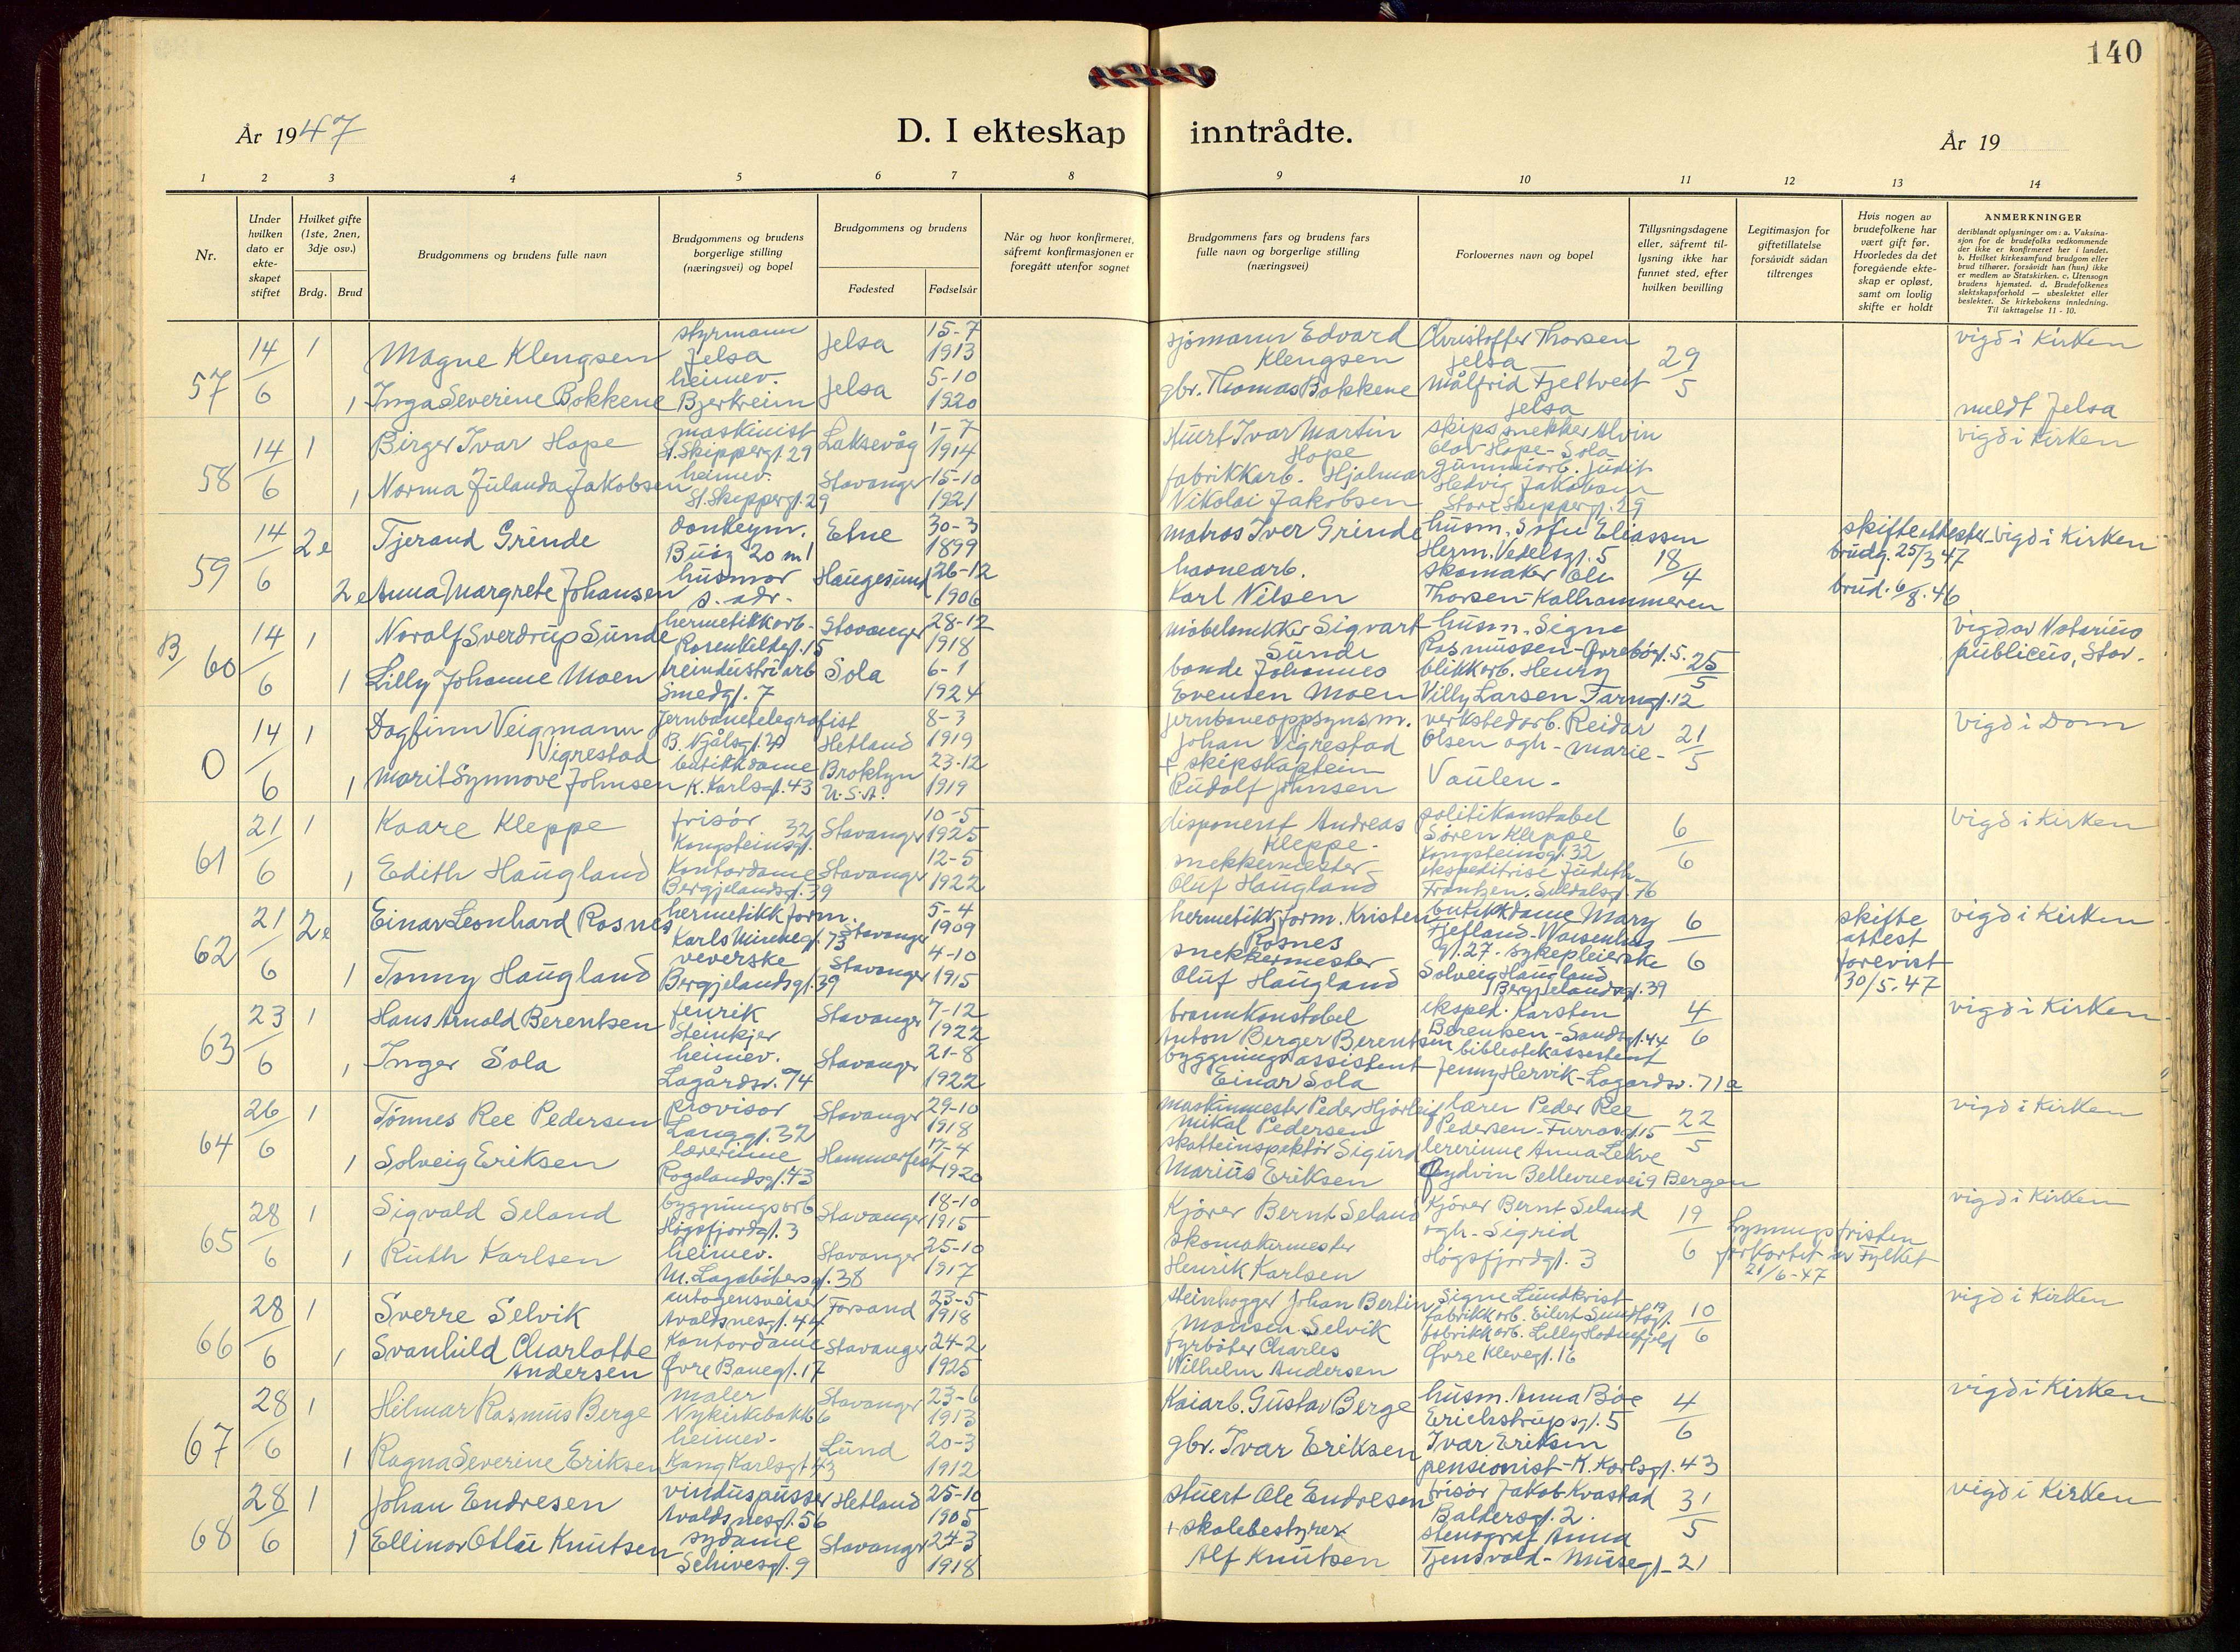 140
År 1947
D. I ekteskap inntrådte.
År 19
1 2 3 4 5 6 7 8 9 10 11 12 13 14
Nr.
Under hvilken dato er ekte-skapet stiftet
Hvilket gifte (1ste, 2nen, 3dje osv.)
Brdg. Brud
Brudgommens og brudens fulle navn
Brudgommens og brudens borgerlige stilling (næringsvei) og bopel
Brudgommens og brudens
Fødested Fødselsår
Når og hvor konfirmeret, såfremt konfirmasjonen er foregått utenfor sognet
Brudgommens fars og brudens fars fulle navn og borgerlige stilling (næringsvei)
Forlovernes navn og bopel
Tillysningsdagene eller, såfremt til-lysning ikke har funnet sted, efter hvilken bevilling
Legitimasjon for giftetillatelse forsåvidt sådan tiltrenges
Hvis nogen av brudefolkene har vært gift før. Hvorledes da det foregående ekte-skap er opløst, samt om lovlig skifte er holdt
ANMERKNINGER
deriblandt oplysninger om: a. Vaksina-sjon for de brudefolks vedkommende der ikke er konfirmeret her i landet. b. Hvilket kirkesamfund brudgom eller brud tilhører, forsåvidt han (hun) ikke er medlem av Statskirken. c. Utensogn brudens hjemsted. d. Brudefolkenes slektskapsforhold — ubeslektet eller beslektet. Se kirkebokens innledning. Til iakttagelse 11 - 10.
57 14/6 1 Magne Klengsen styrmann Jelsa Jelsa 15-7 1913 sjømann Edvard Klengsen Christoffer Thorsen Jelsa 29/5 vigd i Kirken
1 Inga Severine Bokkene heimev. Bjerkreim Jelsa 5-10 1920 gbr. Thomas Bokkene Målfrid Fjeltveit Jelsa meldt Jelsa
58 14/6 1 Birger Ivar Hope maskinist St. Skippergt. 29 Laksevåg 1-7 1914 stuert Ivar Martin Hope skipssnekker Alvin Olav Hope - Sola vigd i Kirken
1 Norma Julanda Jakobsen heimev. St. Skippergt. 29 Stavanger 15-10 1921 fabrikkarb. Hjalmar Nikolai Jakobsen gummiarb. Judit Hedvig Jakobsen Store Skippergt. 29
59 14/6 2e Tjerand Grinde donkeym. Buøy 20 m1 Etne 30-3 1899 matros Iver Grinde husm. Sofie Eliassen Herm. Vedelsgt. 5 18/4 skifteattester brudg. 25/3 47 vigd i Kirken
2e Anna Margrete Johansen husmor s. adr. Haugesund 26-12 1906 havnearb. Karl Nilsen skomaker Ole Thorsen - Kalhammeren brud. 6/8. 46
B/ 60 14/6 1 Noralf Sverdrup Sunde hermetikkarb. Rosenkildegt. 15 Stavanger 28-12 1918 møbelsnekker Sigvart Sunde husm. Signe Rasmussen - Orrebøgt. 5. 25/5 vigd av Notarius publicus, Stav.
1 Lilly Johanne Moen heimindustriarb Smedgt. 7 Sola 6-1 1924 bonde Johannes Evensen Moen blikkarb. Henry Villy Larsen Tarngt. 12
0 14/6 1 Dagfinn Veigmann Vigrestad Jernbanetelegrafist B. Njålsgt. 30 Hetland 8-3 1919 jernbaneoppsynsm. Johan Vigrestad verkstedarb. Reidar Olsen ogh- Marie - 21/5 vigd i Dom
1 Marit Synnove Johnsen butikkdame K. Karlsgt. 43 Broklyn U.S.A. 23-12 1919 + skipskaptein Rudolf Johnsen Vaulen -
61 21/6 1 Kaare Kleppe frisør Kongsteinsgt. 32 Stavanger 10-5 1925 disponent Andreas Kleppe - politikonstabel Søren Kleppe Kongsteinsgt. 32 6/6 vigd i Kirken
1 Edith Haugland Kontordame Bergjelandsgt. 39 Stavanger 12-5 1922 snekkermester Oluf Haugland ekspeditrise Judith Frantzen. Suldalsgt. 76
62 21/6 2e Einar Leonhard Rosnes hermetikkform. Karls Minnegt. 73 Stavanger 5-4 1909 hermetikkform. Kristen Rosnes butikkdame Mary Hetland - gt. 27 - 6/6 skifte attest forevist 30/5. 47 vigd i Kirken
1 Tonny Haugland veverske Bergjelandsgt. 39 Stavanger 4-10 1915 snekkermester Oluf Haugland sykepleierske Solveig Haugland Bergjelandsgt. 39
63 23/6 1 Hans Arnold Berentsen fenrik Steinkjer Stavanger 7-12 1922 brannkonstabel Anton Berger Berentsen eksped. Karsten Berentsen - Sandsgt. 44 4/6 vigd i Kirken
1 Inger Sola heimev. Lagårdsv. 74 Stavanger 21-8 1922 bygningsassistent Einar Sola bibliotekassistent Jenny Hervik - Lagårdsv. 71a
64 26/6 1 Tønnes Ree Pedersen provisor Langgt. 32 Stavanger 29-10 1918 maskinmester Peder Hjørleif Mikal Pedersen lærer Peder Ree Pedersen - Furrasgt. 15 22/5 vigd i Kirken
1 Solveig Eriksen lærerinne Rogalandsgt. 43 Hammerfest 17-4 1920 skatteinspektør Sigurd Marius Eriksen lererinne Anna Lekve Bellevuevei 9 Bergen
65 28/6 1 Sigvald Seland bygningsarb Høgsfjordgt. 3 Stavanger 18-10 1915 Kjører Bernt Seland Kjører Bernt Seland ogh - Sigrid Høgsfjordgt. 3 19/6 Lysningsfristen forkortet av Fylket 21/6-47 vigd i Kirken
1 Ruth Karlsen heimev. M. Lagabøtersgt. 38 Stavanger 25-10 1917 skomakermester Henrik Karlsen
66 28/6 1 Sverre Selvik autogensveiser Avaldsnesgt. 44 Forsand 23-5 1918 steinhogger Johan Bertin Monsen Selvik Signe Lundkvist fabrikkarb. Eilert Sundtsgt. 19 10/6 vigd i Kirken
1 Svanhild Charlotte Andersen Kontordame Øvre Banegt. 17 Stavanger 24-2 1925 fyrbøter Charles Wilhelm Andersen fabrikkarb. Lilly Hodnefjeld Øvre Klevegt. 16
67 28/6 1 Hilmar Rasmus Berge maler Nykirkebakk 6 Stavanger 23-6 1913 Kaiarb. Gustav Berge husm. Anna Bøe Erichstrupsgt. 5 4/6 vigd i Kirken
1 Ragna Severine Eriksen heimev. Kong Karlsgt 43 Lund 20-3 1912 gbr. Ivar Eriksen Ivar Eriksen pensionist - K. Karlsgt. 43
68 28/6 1 Johan Endresen vinduspusser Avaldsnesgt. 56 Hetland 25-10 1905 stuert Ole Endresen frisør Jakob Kvastad Baldersgt. 2. 31/5 vigd i Kirken
1 Ellinor Otilie Knutsen sydame Schivesgt. 9 Stavanger 24-3 1918 + skolebestyrer Alf Knutsen stenograf Anna Tjensvold - Musegt. 21